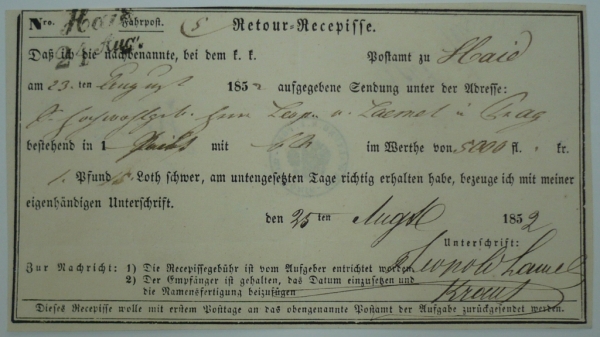 Nro. Haid Fahrpost. (5 Retour-Recepisse.
24 Aug:
Daß ich die nachbenannte, bei dem k. k. Postamt zu Haid
am 23.ten August 1852 aufgegebene Sendung unter der Adresse:
Herrn Leop. v. Laemel in Prag
bestehend in 1 mit im Werthe von 5000 fl. kr.
1 Pfund Loth schwer, am untengesetzten Tage richtig erhalten habe, bezeuge ich mit meiner
eigenhändigen Unterschrift.
den 25 ten Augst 1852
Unterschrift:
Leopold Lamel
Zur Nachricht: 1) Die Recepissegebühr ist vom Aufgeber entrichtet worden.
2) Der Empfänger ist gehalten, das Datum einzusetzen und
die Namensfertigung beizufügen
Dieses Recepisse wolle mit erstem Posttage an das obengenannte Postamt der Aufgabe zurückgesendet werden.